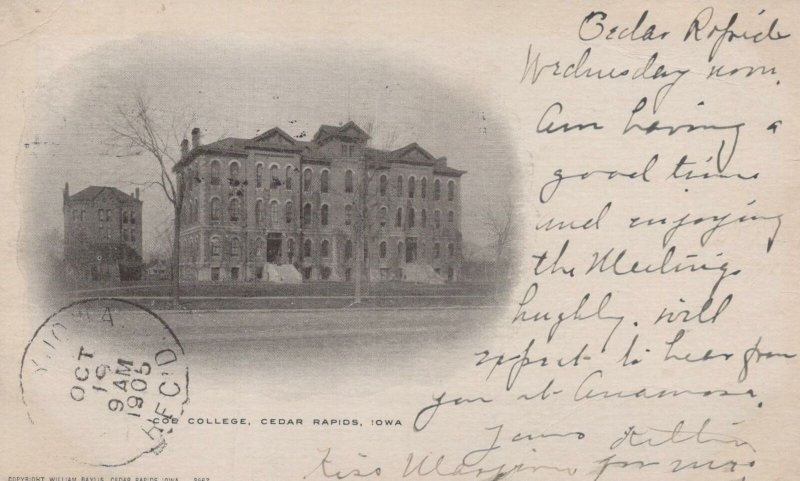 Cedar Rapids
Wednesday noon.
Am having a
good time
and enjoying
the Meetings
hughly. will
expect to hear from
you at Anamosa.
Kiss for me
IOWA
OCT
19
9 AM
1905
REC'D
COE COLLEGE, CEDAR RAPIDS, IOWA
COPYRIGHT WILLIAM BAYLIS, CEDAR RAPIDS, IOWA